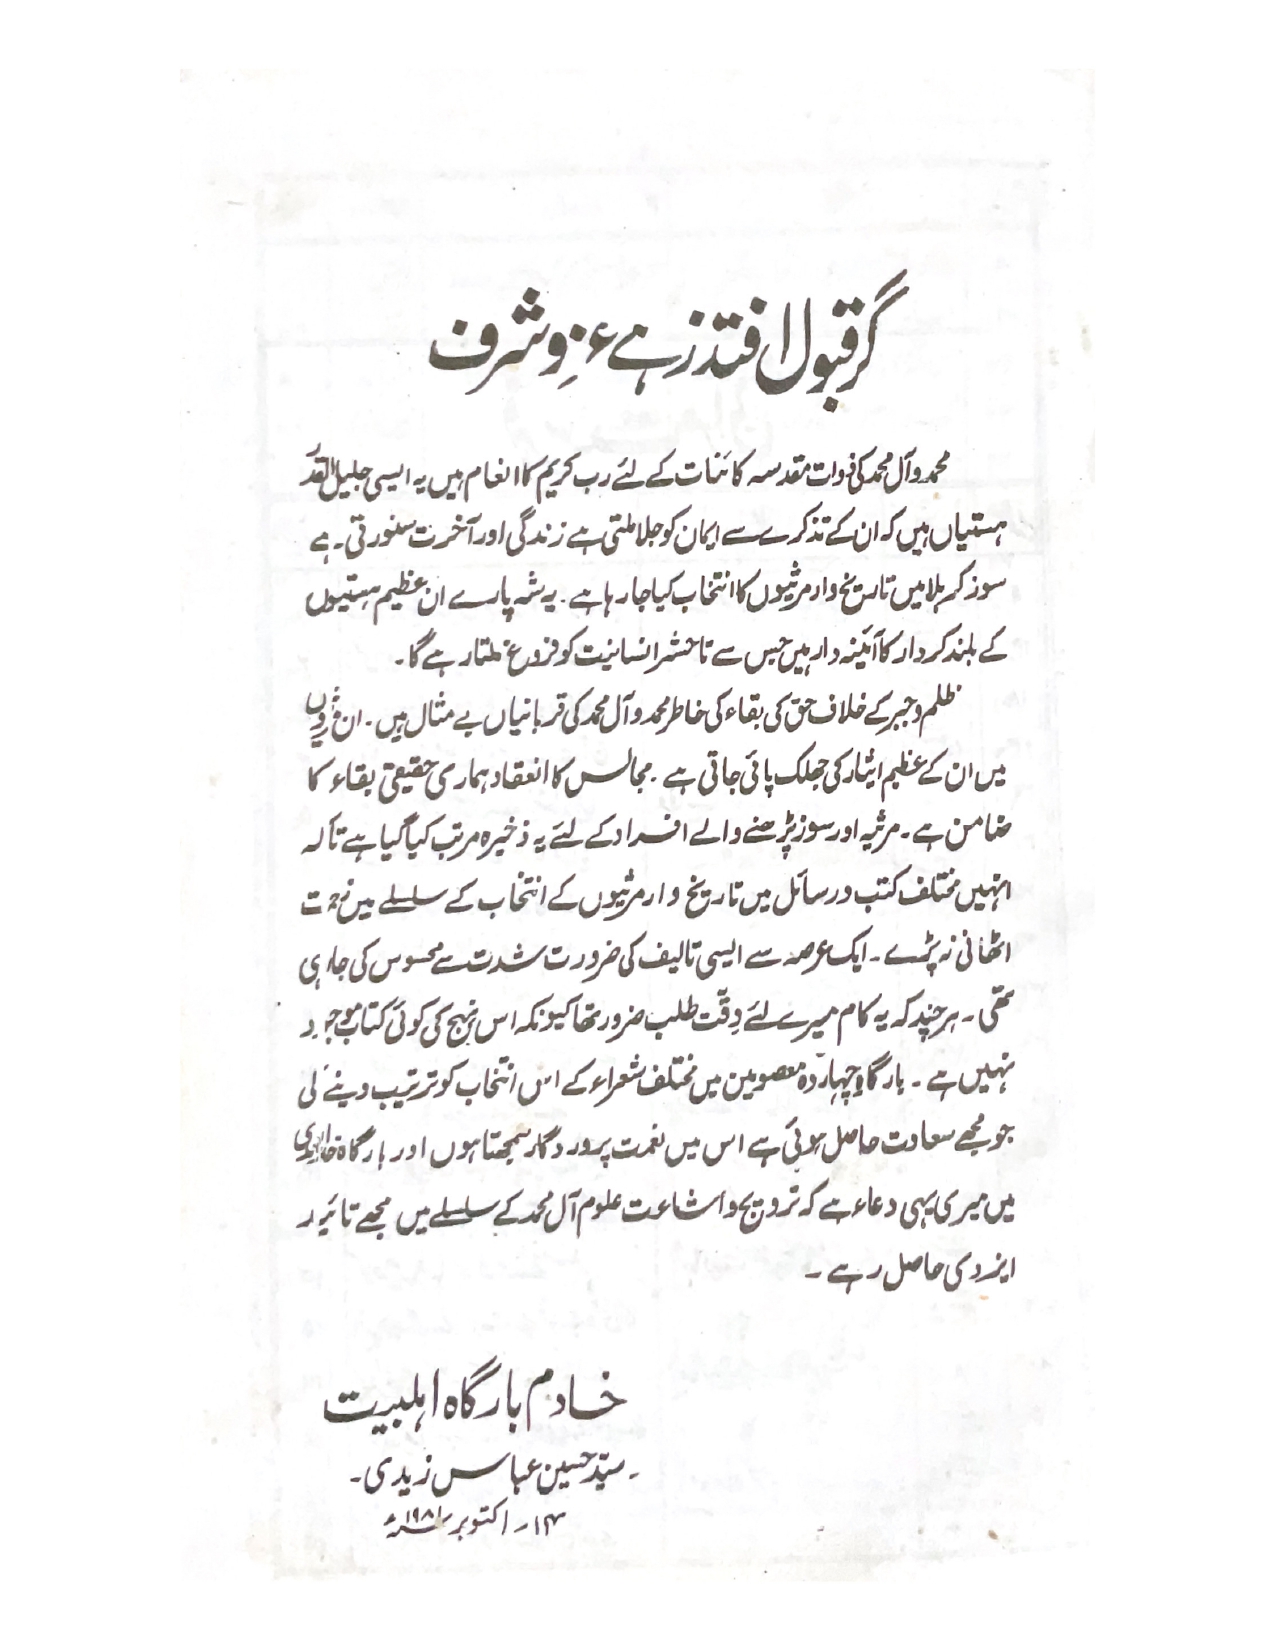 گر قبول افتد زہے عز و شرف
محمد و آل محمد کی ذوات مقدسہ کائنات کے لئے رب کریم کا انعام ہیں یہ ایسی جلیل القدر
ہستیاں ہیں کہ ان کے تذکرے سے ایمان کو جلا ملتی ہے زندگی اور آخرت سنورتی۔ ہے
سوز کربلا میں تاریخ وار مرثیوں کا انتخاب کیا جا رہا ہے۔ یہ شہ پارے ان عظیم ہستیوں
کے بلند کردار کا آئینہ دار ہیں جس سے تا حشر انسانیت کو فروغ ملتا رہے گا۔
ظلم و جبر کے خلاف حق کی بقاء کی خاطر محمد و آل محمد کی قربانیاں بے مثال ہیں۔ ان مرثیوں
میں ان کے عظیم ایثار کی جھلک پائی جاتی ہے۔ مجالس کا انعقاد ہماری حقیقی بقاء کا
ضامن ہے۔ مرثیہ اور سوز پڑھنے والے افراد کے لئے یہ ذخیرہ مرتب کیا گیا ہے تاکہ
انہیں مختلف کتب و رسائل میں تاریخ وار مرثیوں کے انتخاب کے سلسلے میں زحمت
اٹھانی نہ پڑے۔ ایک عرصہ سے ایسی تالیف کی ضرورت شدت سے محسوس کی جا رہی
تھی۔ ہر چند کہ یہ کام میرے لئے دِقّت طلب ضرور تھا کیونکہ اس نہج کی کوئی کتاب موجود
نہیں ہے۔ بارگاہِ چہاردہ معصومین میں مختلف شعراء کے اس انتخاب کو ترتیب دینے کی
جو مجھے سعادت حاصل ہوئی ہے اس میں نعمت پروردگار سمجھتا ہوں اور بارگاہ خداوندی
میں میری یہی دعاء ہے کہ ترویج و اشاعت علوم آل محمد کے سلسلے میں مجھے تائید
ایزدی حاصل رہے۔
خادم بارگاہ اہلبیت
۔ سیّد حسین عباس زیدی۔
۱۴۔ اکتوبر ۱۹۸۱ء